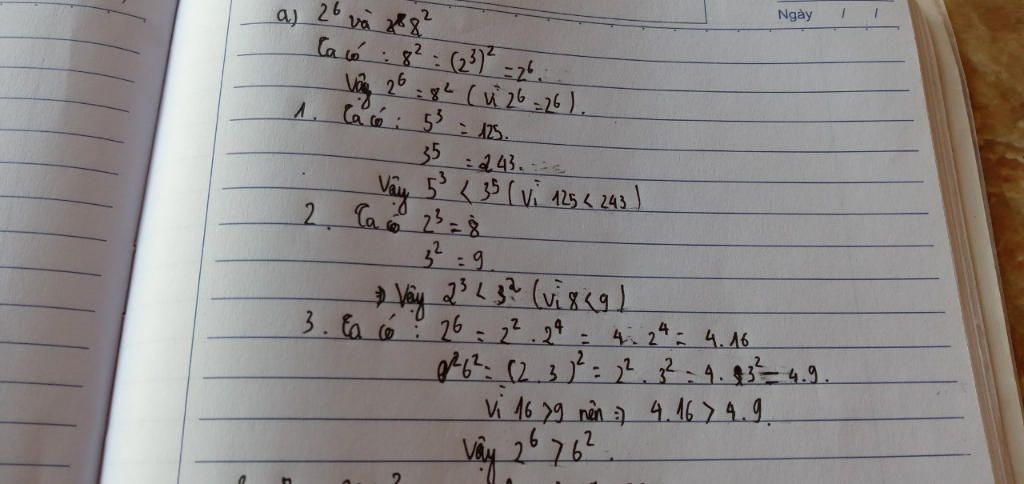 Ngày / /
a) 2⁶ và 8²
Ta có : 8² = (2³)² = 2⁶.
Vậy 2⁶ = 8² (vì 2⁶ = 2⁶).
1. Ta có : 5³ = 125.
3⁵ = 243.
Vậy 5³ < 3⁵ (Vì 125 < 243)
2. Ta có 2³ = 8
3² = 9.
⇒ Vậy 2³ < 3² (Vì 8 < 9)
3. Ta có : 2⁶ = 2² . 2⁴ = 4 . 2⁴ = 4.16
6² = (2 . 3)² = 2² . 3² = 4 . 3² = 4.9.
Vì 16 > 9 nên ⇒ 4.16 > 4.9.
Vậy 2⁶ > 6².